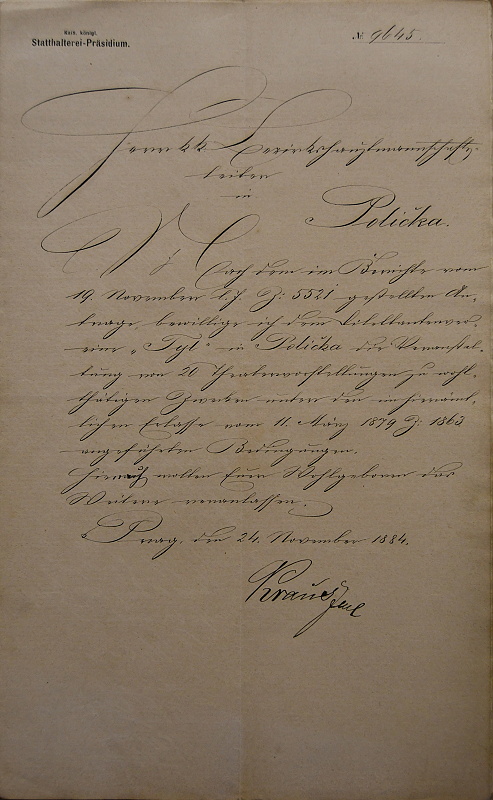 Kais. königl.
Statthalterei-Präsidium.
№ 9645
Herrn kk Bezirkshauptmannschafts-
leiter
in
Polička.
Nach dem im Berichte vom
19. November l. J. Z: 5521 gestellten An-
trage bewillige ich dem Dilettantenver-
eine „Tyl" in Polička die Veranstal-
tung von 20 Theatervorstellungen zu wohl-
thätigen Zwecken unter den im hierämt-
lichen Erlasse vom 11. März 1879 Z: 1863
angeführten Bedingungen.
Hienach wollen Euer Wohlgeboren das
Weitere veranlassen.
Prag, den 24. November 1884.
Kraus